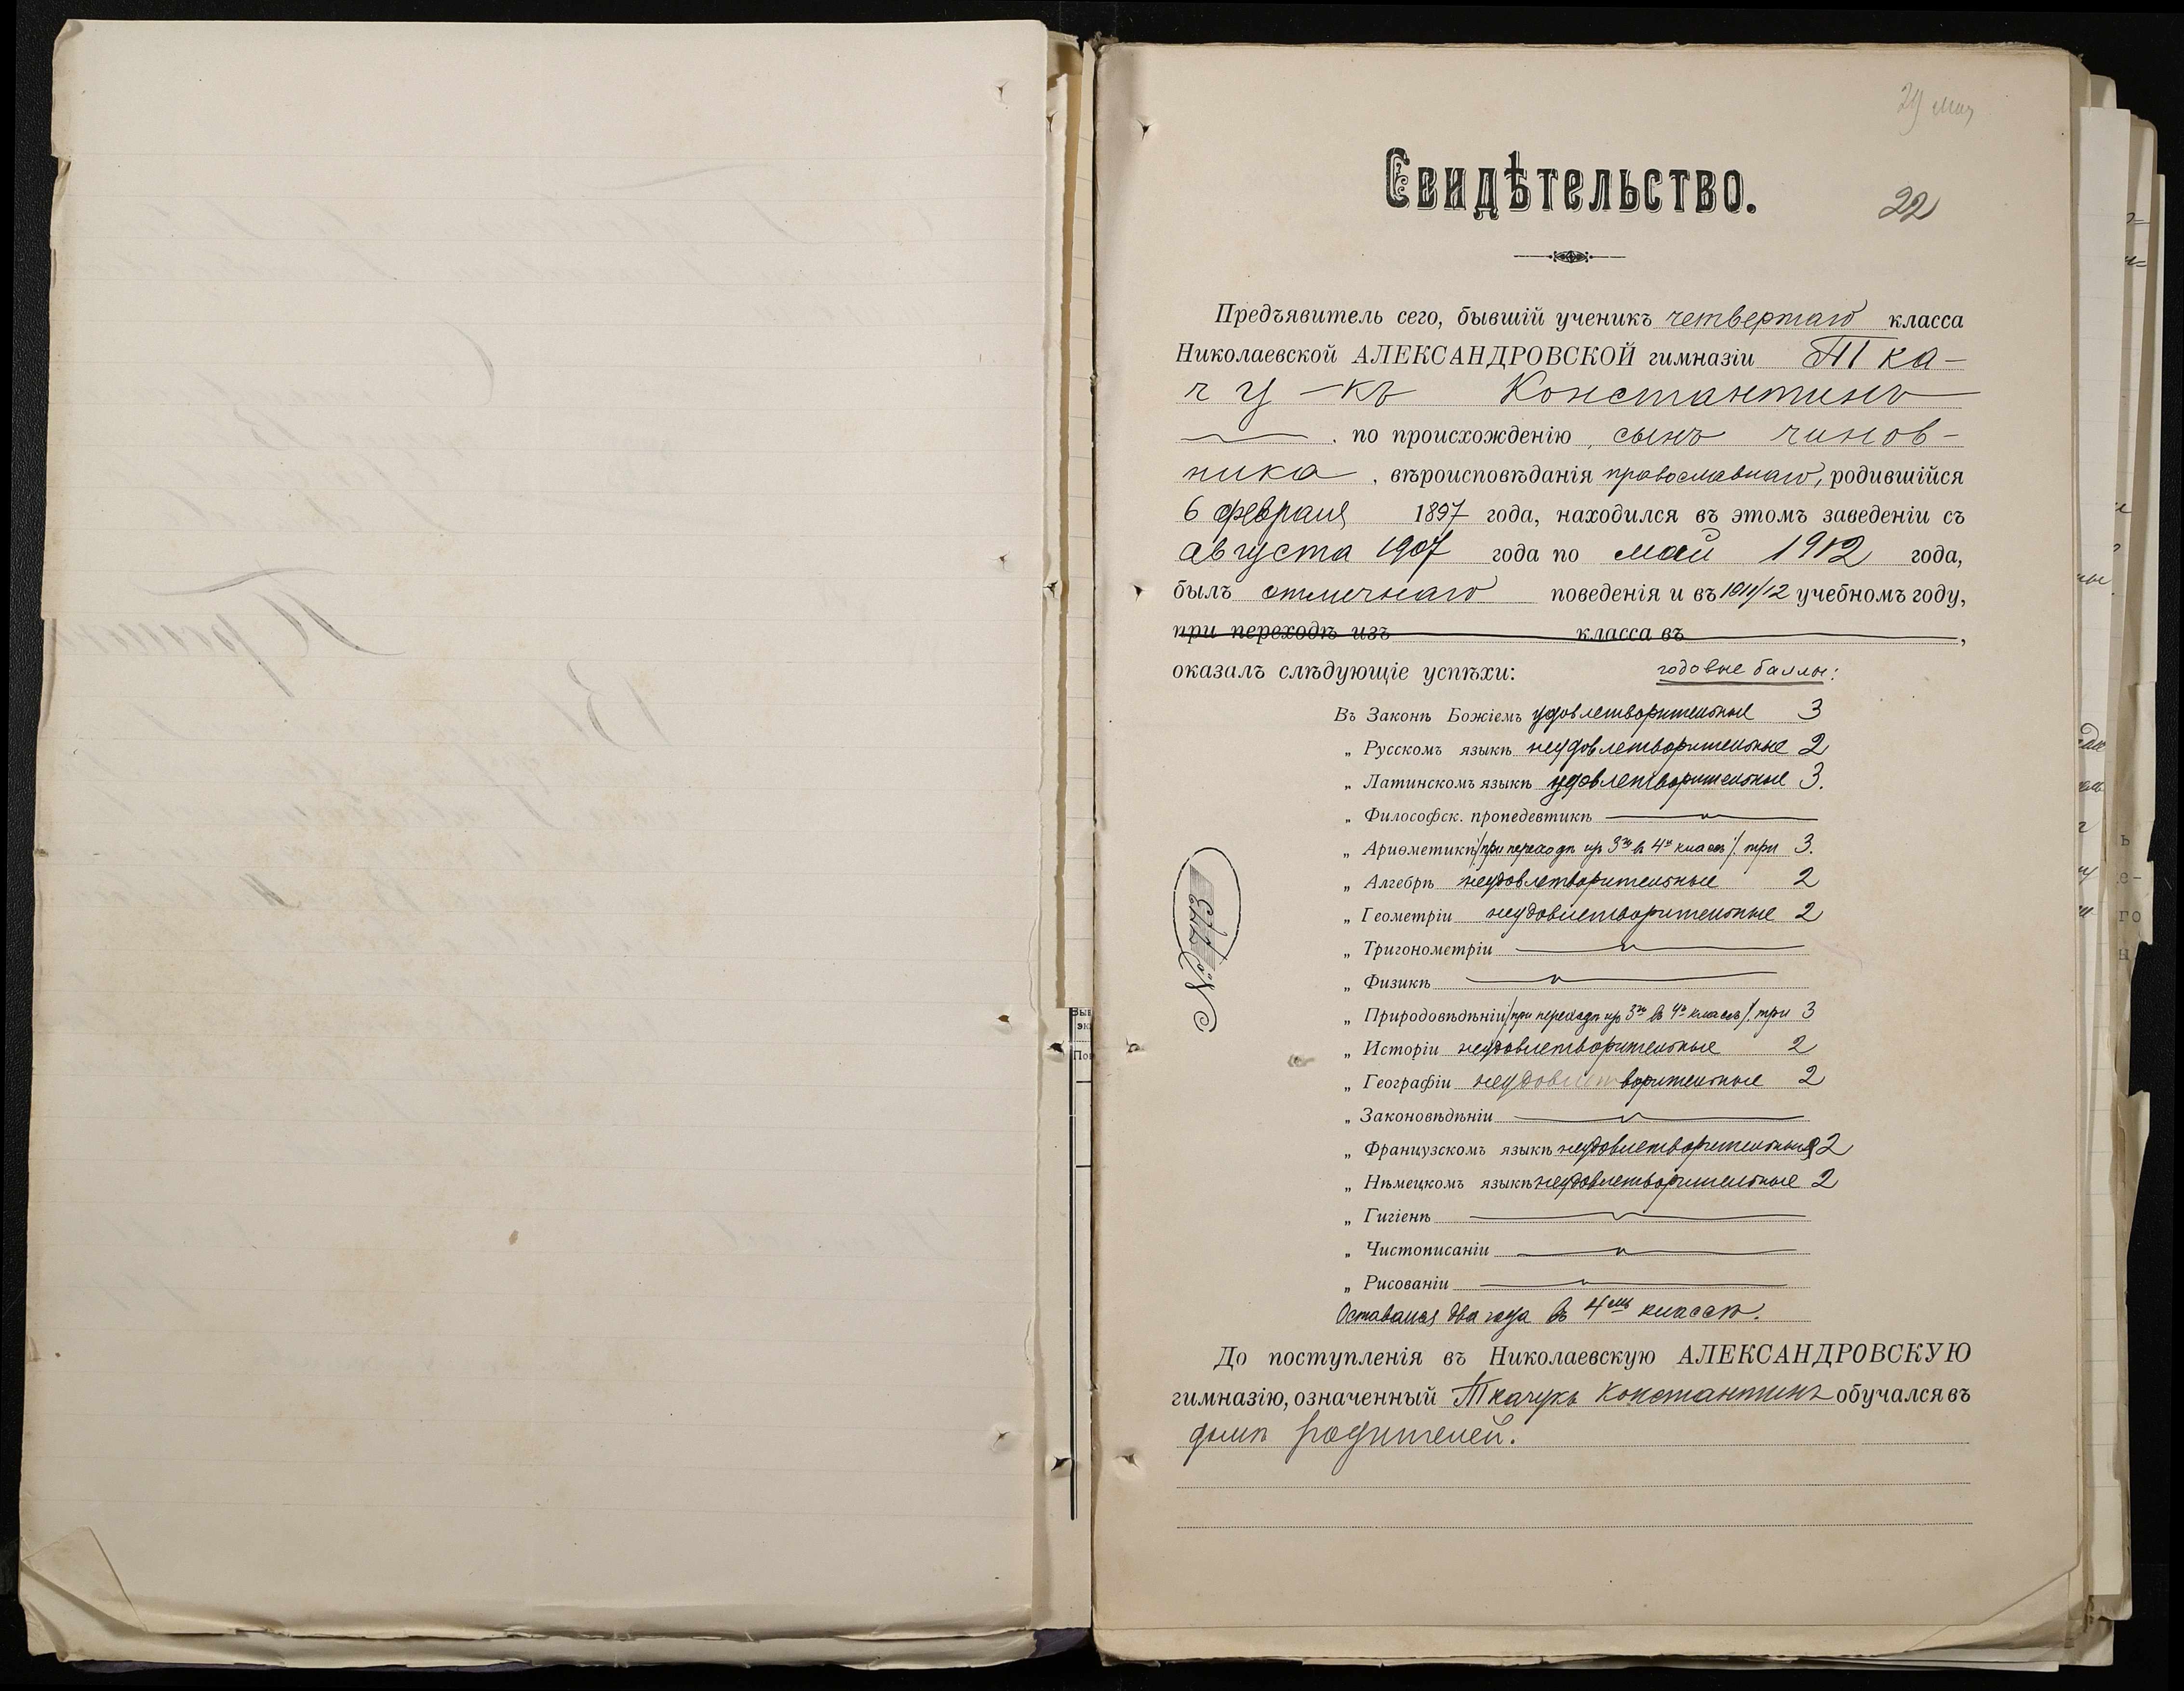 29 мая
Свидѣтельство.
22
Предъявитель сего, бывшій ученикъ четвертаго класса
Николаевской АЛЕКСАНДРОВСКОЙ гимназіи Тка-
чу-къ Константинъ
по происхожденію, сынъ чинов-
ника, вѣроисповѣданія православнаго, родившійся
6 февраля 1897 года, находился въ этомъ заведеніи съ
августа 1907 года по май 1912 года,
былъ отличнаго поведенія и въ 1911/12 учебномъ году,
при переходѣ изъ класса въ ,
оказалъ слѣдующіе успѣхи: годовые баллы:
Въ Законѣ Божіемъ удовлетворительные 3
„ Русскомъ языкѣ неудовлетворительные 2
„ Латинскомъ языкѣ удовлетворительные 3.
„ Философск. пропедевтикѣ
„ Ариѳметикѣ /при переходѣ изъ 3го въ 4й классъ/. три 3.
„ Алгебрѣ неудовлетворительные 2
„ Геометріи неудовлетворительные 2
„ Тригонометріи
„ Физикѣ
„ Природовѣдѣніи /при переходѣ изъ 3го въ 4й классъ/. три 3
„ Исторіи неудовлетворительные 2
„ Географіи неудовлетворительные 2
„ Законовѣдѣніи
„ Французскомъ языкѣ неудовлетворительные 2
„ Нѣмецкомъ языкѣ неудовлетворительные 2
„ Гигіенѣ
„ Чистописаніи
„ Рисованіи
Оставался два года въ 4мъ классѣ.
До поступленія въ Николаевскую АЛЕКСАНДРОВСКУЮ
гимназію, означенный Ткачукъ Константинъ обучался въ
домѣ родителей.